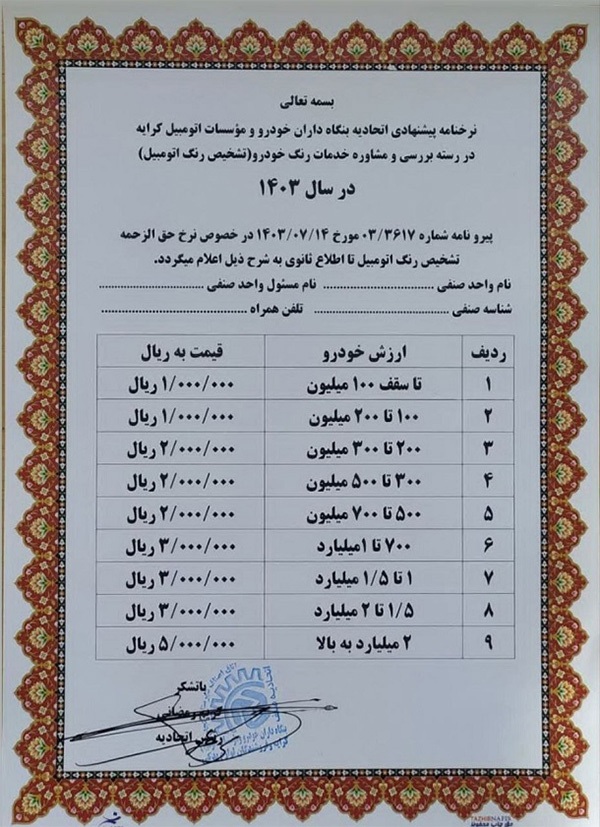 بسمه تعالی
نرخنامه پیشنهادی اتحادیه بنگاه داران خودرو و مؤسسات اتومبیل کرایه
در رسته بررسی و مشاوره خدمات رنگ خودرو(تشخیص رنگ اتومبیل)
در سال ۱۴۰۳
پیرو نامه شماره ۰۳/۳۶۱۷ مورخ ۱۴۰۳/۰۷/۱۴ در خصوص نرخ حق الزحمه
تشخیص رنگ اتومبیل تا اطلاع ثانوی به شرح ذیل اعلام میگردد.
نام واحد صنفی ............................ نام مسئول واحد صنفی ............................
شناسه صنفی .................................... تلفن همراه .......................................
ردیف ارزش خودرو قیمت به ریال
۱ تا سقف ۱۰۰ میلیون ۱/۰۰۰/۰۰۰ ریال
۲ ۱۰۰ تا ۲۰۰ میلیون ۱/۰۰۰/۰۰۰ ریال
۳ ۲۰۰ تا ۳۰۰ میلیون ۲/۰۰۰/۰۰۰ ریال
۴ ۳۰۰ تا ۵۰۰ میلیون ۲/۰۰۰/۰۰۰ ریال
۵ ۵۰۰ تا ۷۰۰ میلیون ۲/۰۰۰/۰۰۰ ریال
۶ ۷۰۰ تا ۱میلیارد ۳/۰۰۰/۰۰۰ ریال
۷ ۱ تا ۱/۵ میلیارد ۳/۰۰۰/۰۰۰ ریال
۸ ۱/۵ تا ۲ میلیارد ۳/۰۰۰/۰۰۰ ریال
۹ ۲ میلیارد به بالا ۵/۰۰۰/۰۰۰ ریال
باتشکر
رمضانی
اتحادیه